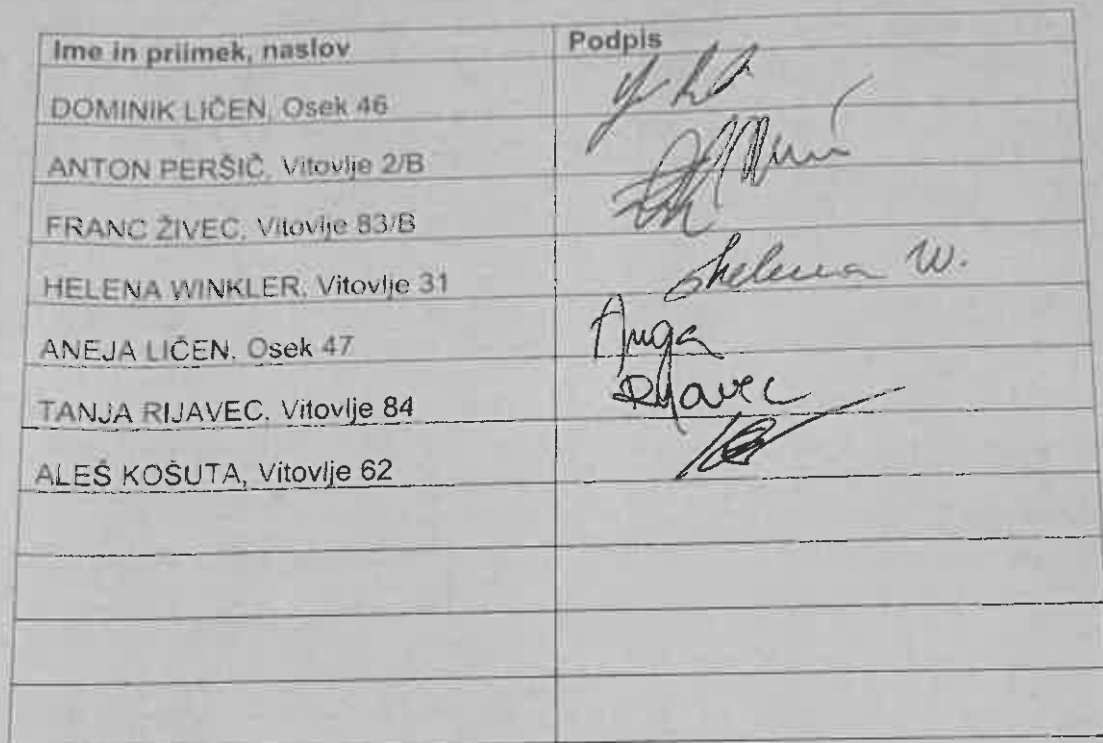 Ime in priimek, naslov Podpis
DOMINIK LIČEN, Osek 46
ANTON PERŠIČ, Vitovlje 2/B
FRANC ŽIVEC, Vitovlje 83/B
HELENA WINKLER, Vitovlje 31 Helena W.
ANEJA LIČEN, Osek 47
TANJA RIJAVEC, Vitovlje 84 Rijavec
ALEŠ KOŠUTA, Vitovlje 62